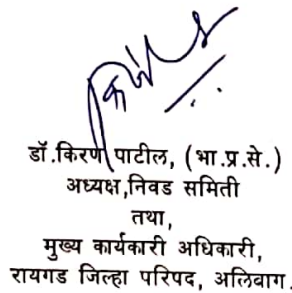 डॉ.किरण पाटील, (भा.प्र.से.)
अध्यक्ष,निवड समिती
तथा,
मुख्य कार्यकारी अधिकारी,
रायगड जिल्हा परिषद, अलिबाग.